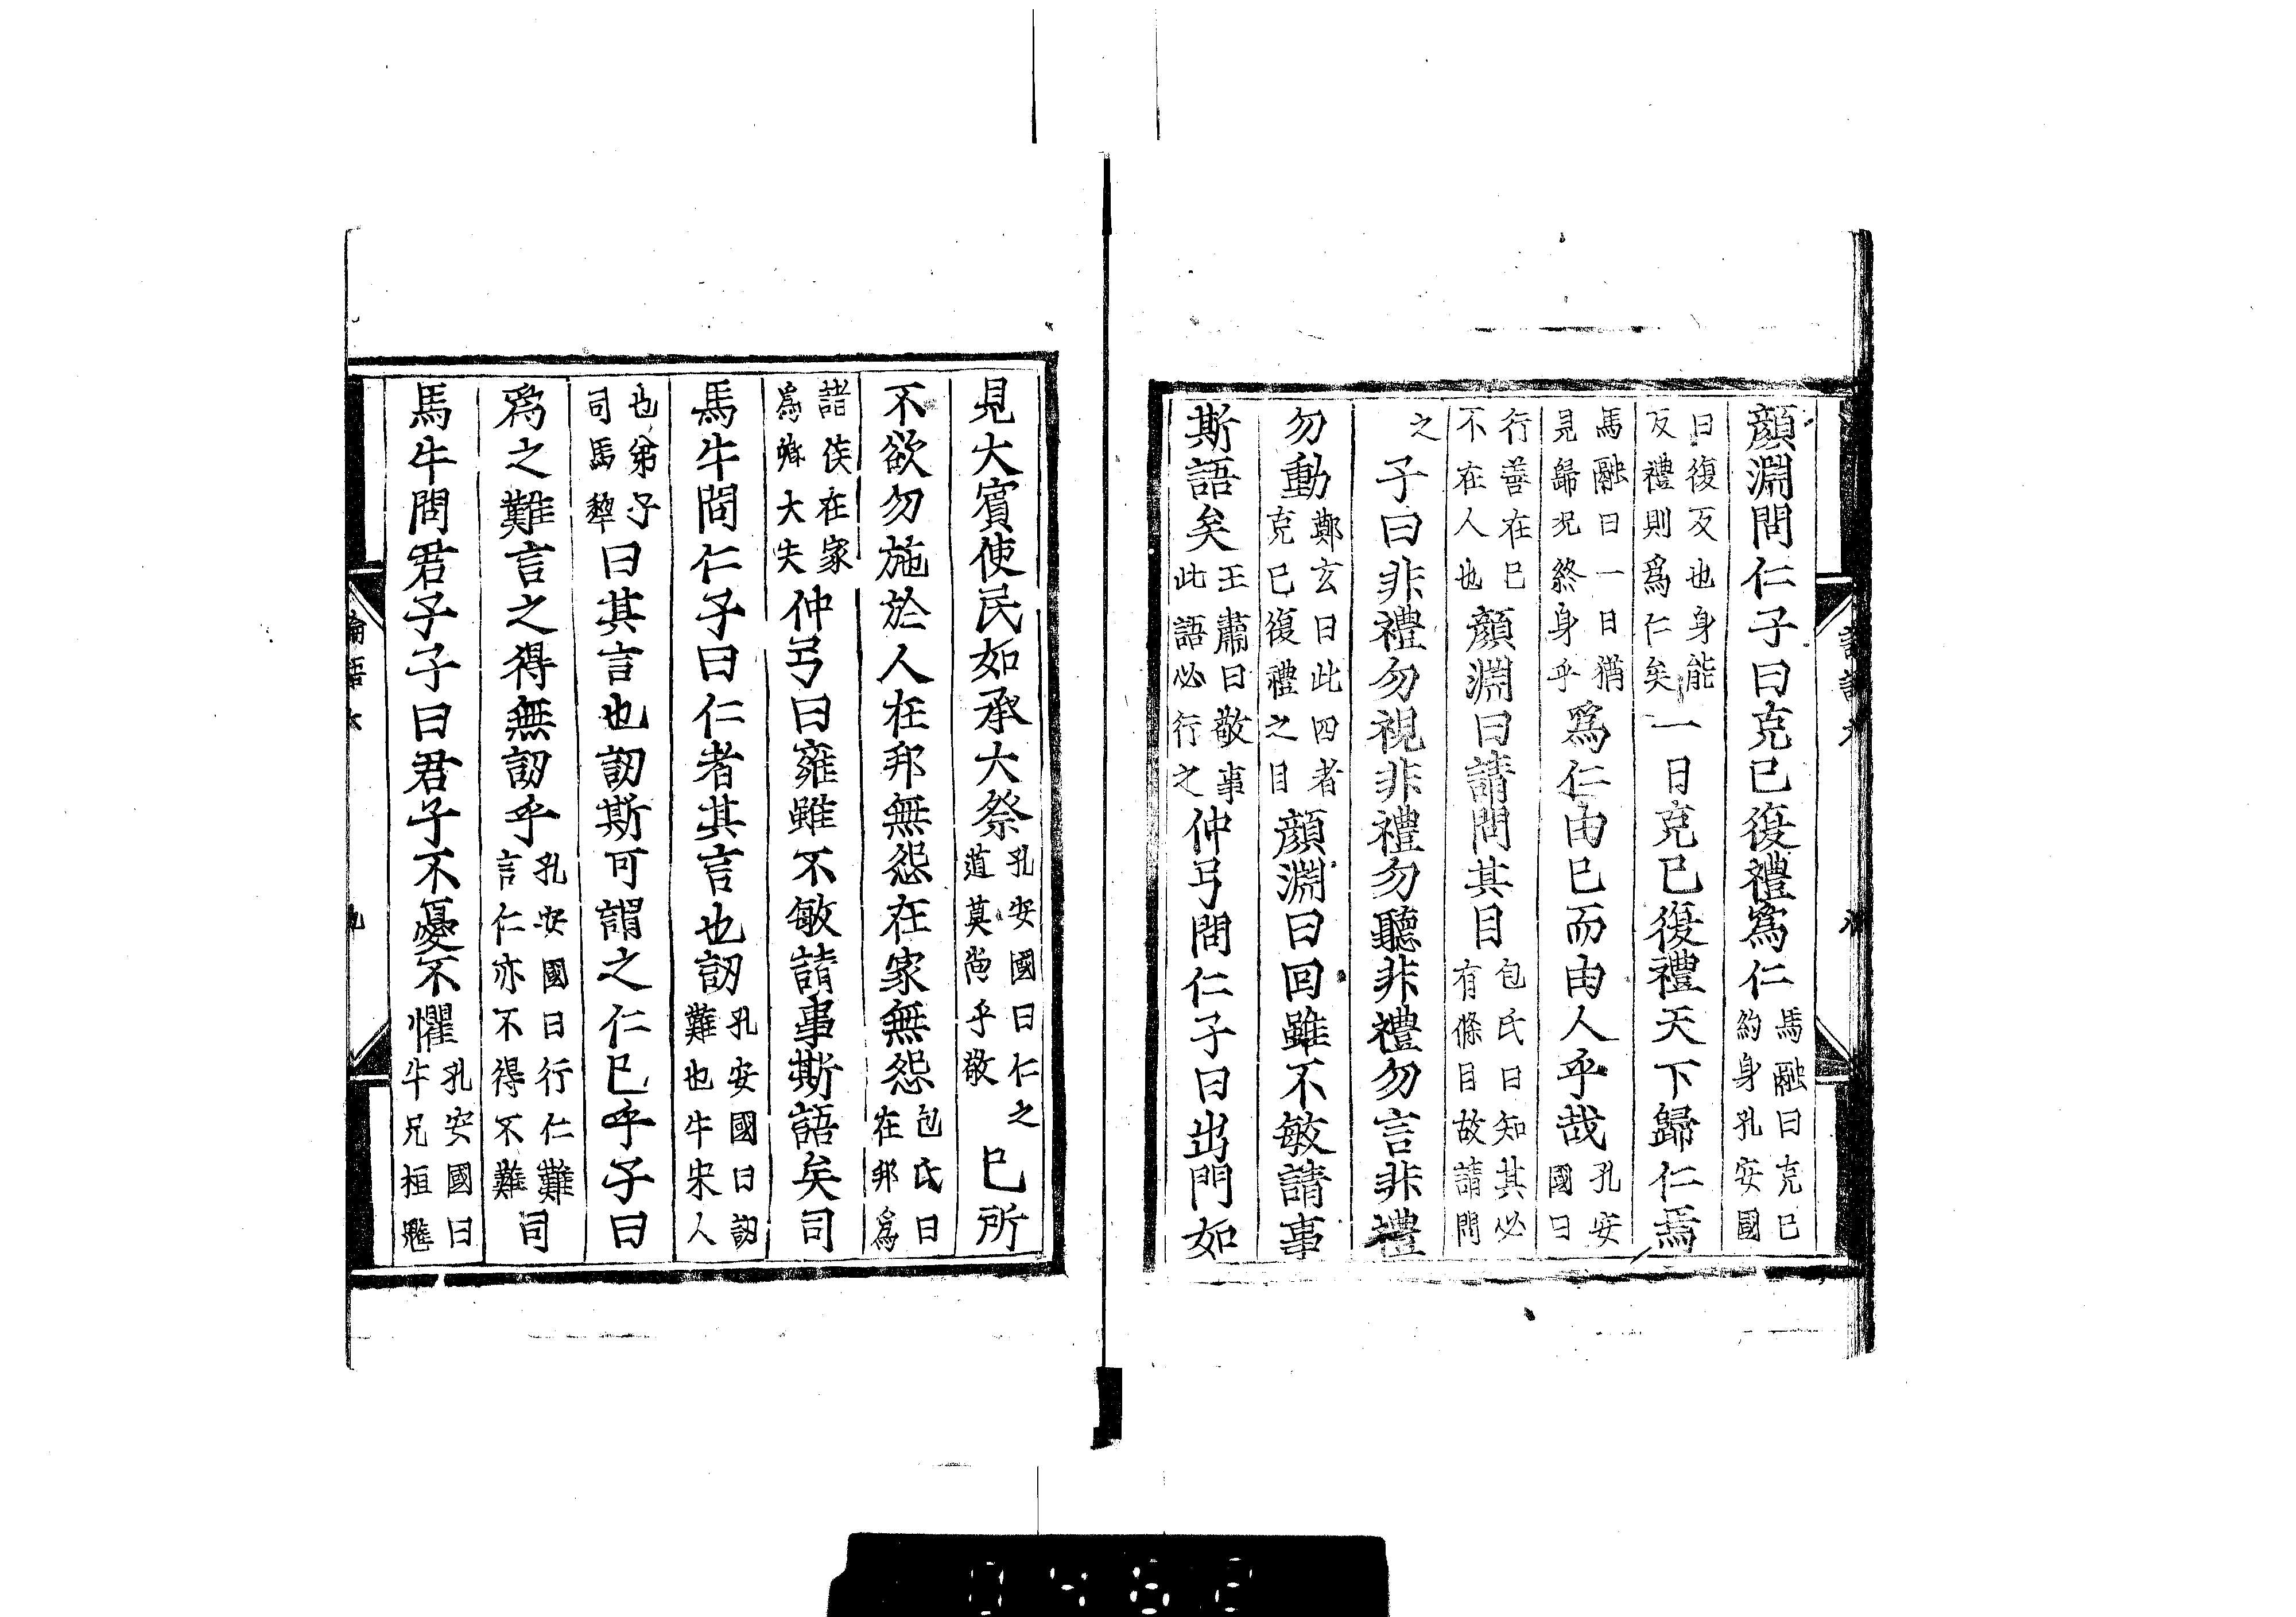 顔淵問仁子曰克己復禮爲仁馬融曰克己約身孔安國
曰復反也身能反禮則爲仁矣一日克己復禮天下歸仁焉
馬融曰一日猶見歸況終身乎爲仁由己而由人乎哉孔安國曰
行善在己不在人也顔淵曰請問其目包氏曰知其必有條目故請問
之子曰非禮勿視非禮勿聽非禮勿言非禮
勿動鄭玄曰此四者克己復禮之目顔淵曰回雖不敏請事
斯語矣王肅曰敬事此語必行之仲弓問仁子曰出門如
見大賓使民如承大祭孔安國曰仁之道莫尚乎敬己所
不欲勿施於人在邦無怨在家無怨包氏曰在邦爲
諸侯在家爲卿大夫仲弓曰雍雖不敏請事斯語矣司
馬牛問仁子曰仁者其言也訒孔安國曰訒難也牛宋人
也弟子司馬犂曰其言也訒斯可謂之仁已乎子曰
爲之難言之得無訒乎孔安國曰行仁難言仁亦不得不難司
馬牛問君子子曰君子不憂不懼孔安國曰牛兄桓魋
論語六
九
0482